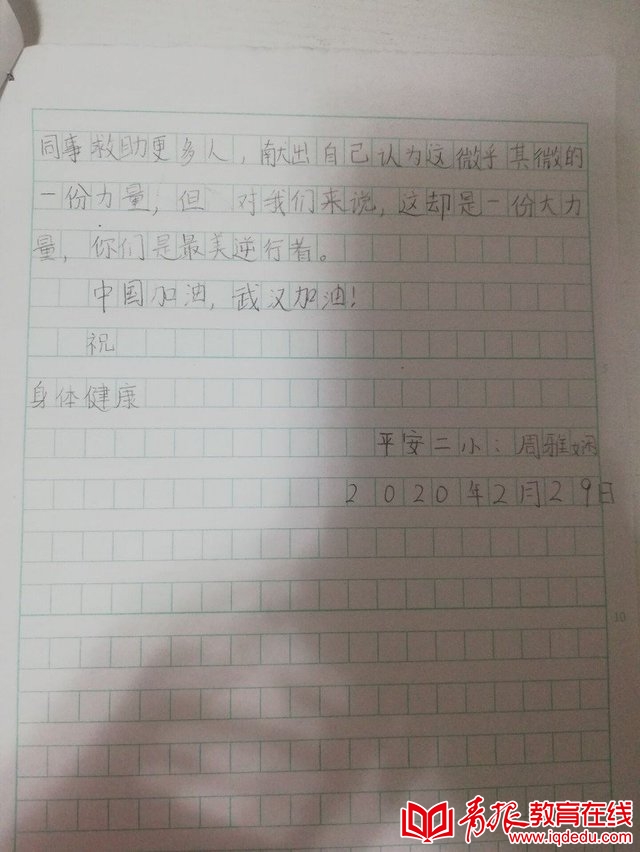 同事救助更多人，献出自己认为这微乎其微的
一份力量，但 对我们来说，这却是一份大力
量，你们是最美逆行者。
中国加油，武汉加油！
祝
身体健康
平安二小：周雅娴
2020年2月29日
10
青报教育在线
www.iqdedu.com